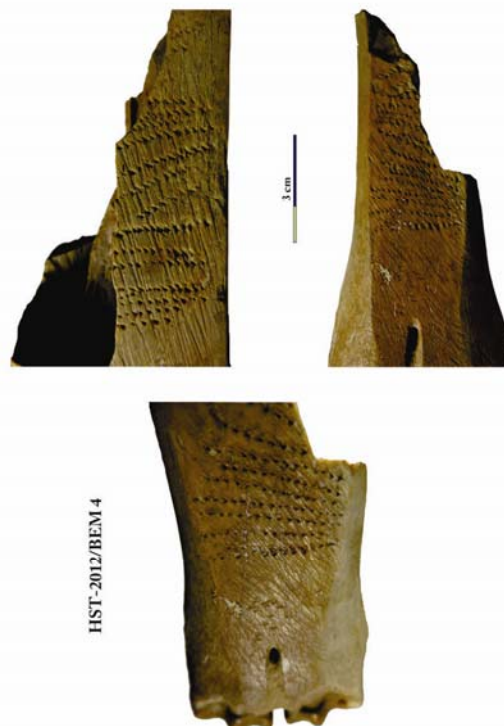 3 cm
HST-2012/BEM 4